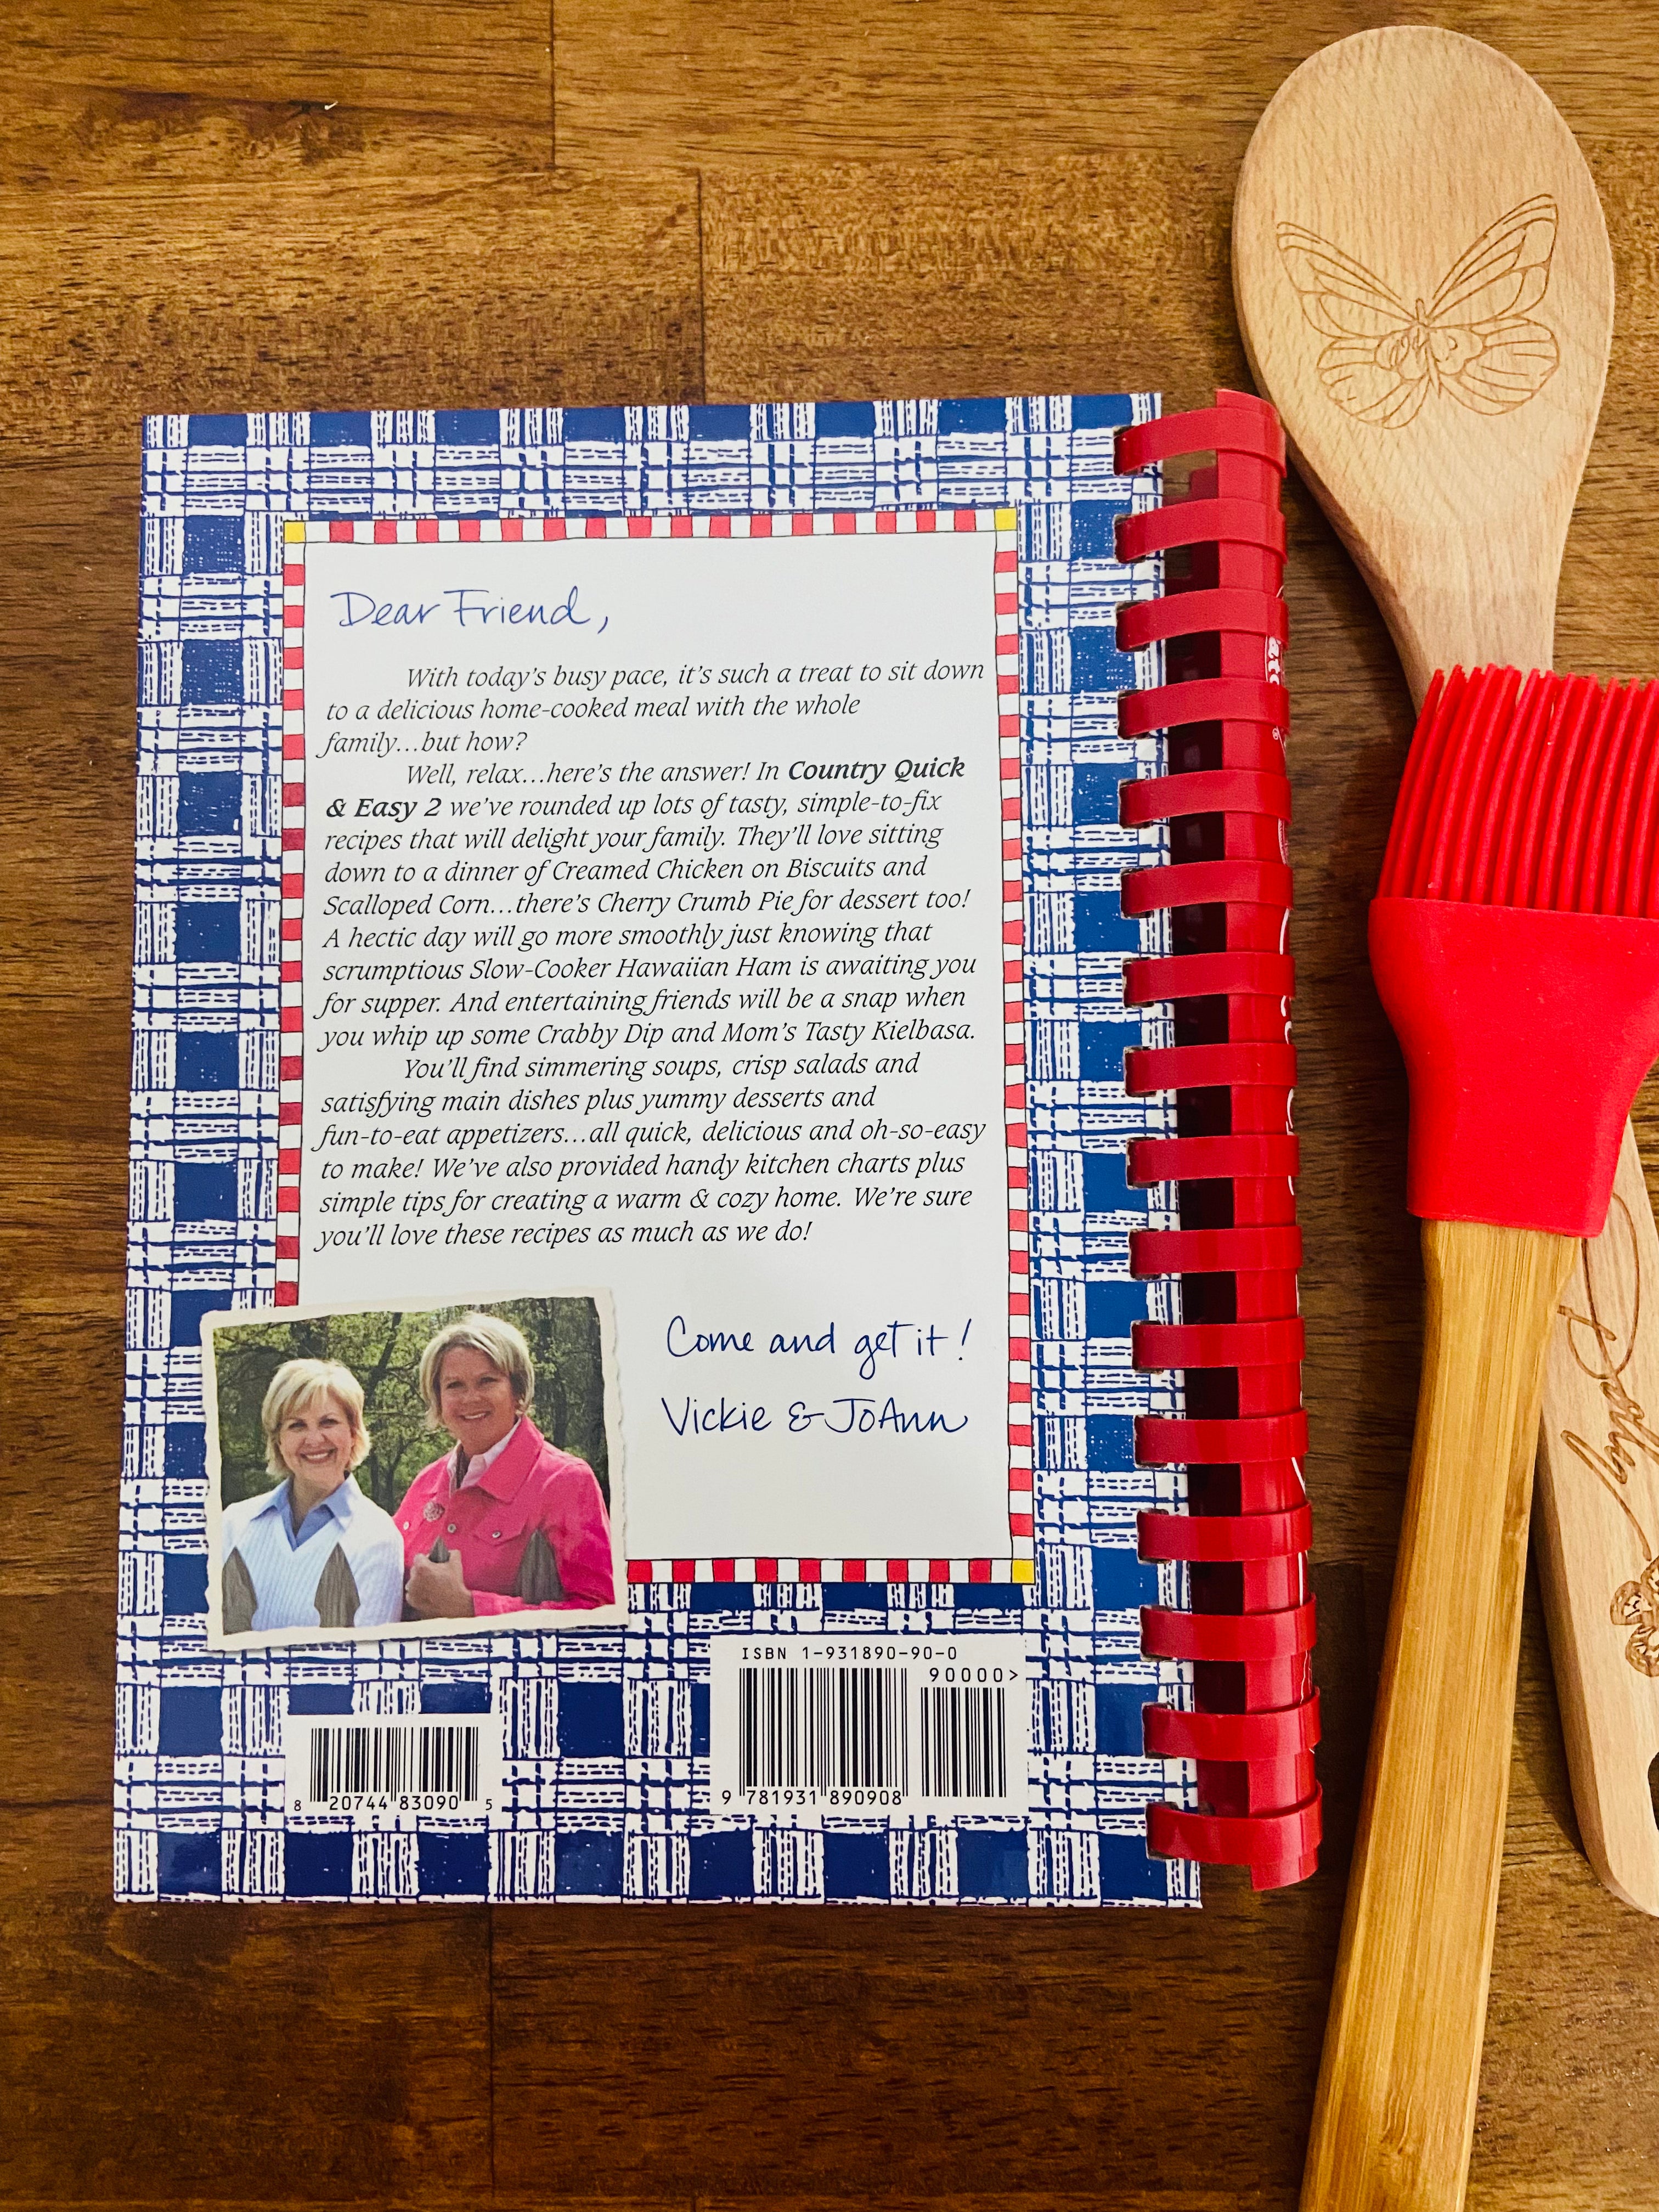 Dear Friend,
With today's busy pace, it's such a treat to sit down
to a delicious home-cooked meal with the whole
family...but how?
Well, relax...here's the answer! In Country Quick
& Easy 2 we've rounded up lots of tasty, simple-to-fix
recipes that will delight your family. They'll love sitting
down to a dinner of Creamed Chicken on Biscuits and
Scalloped Corn...there's Cherry Crumb Pie for dessert too!
A hectic day will go more smoothly just knowing that
scrumptious Slow-Cooker Hawaiian Ham is awaiting you
for supper. And entertaining friends will be a snap when
you whip up some Crabby Dip and Mom's Tasty Kielbasa.
You'll find simmering soups, crisp salads and
satisfying main dishes plus yummy desserts and
fun-to-eat appetizers...all quick, delicious and oh-so-easy
to make! We've also provided handy kitchen charts plus
simple tips for creating a warm & cozy home. We're sure
you'll love these recipes as much as we do!
Come and get it!
Vickie & JoAnn
ISBN 1-931890-90-0
90000>
9 781931 890908
8 20744 83090 5